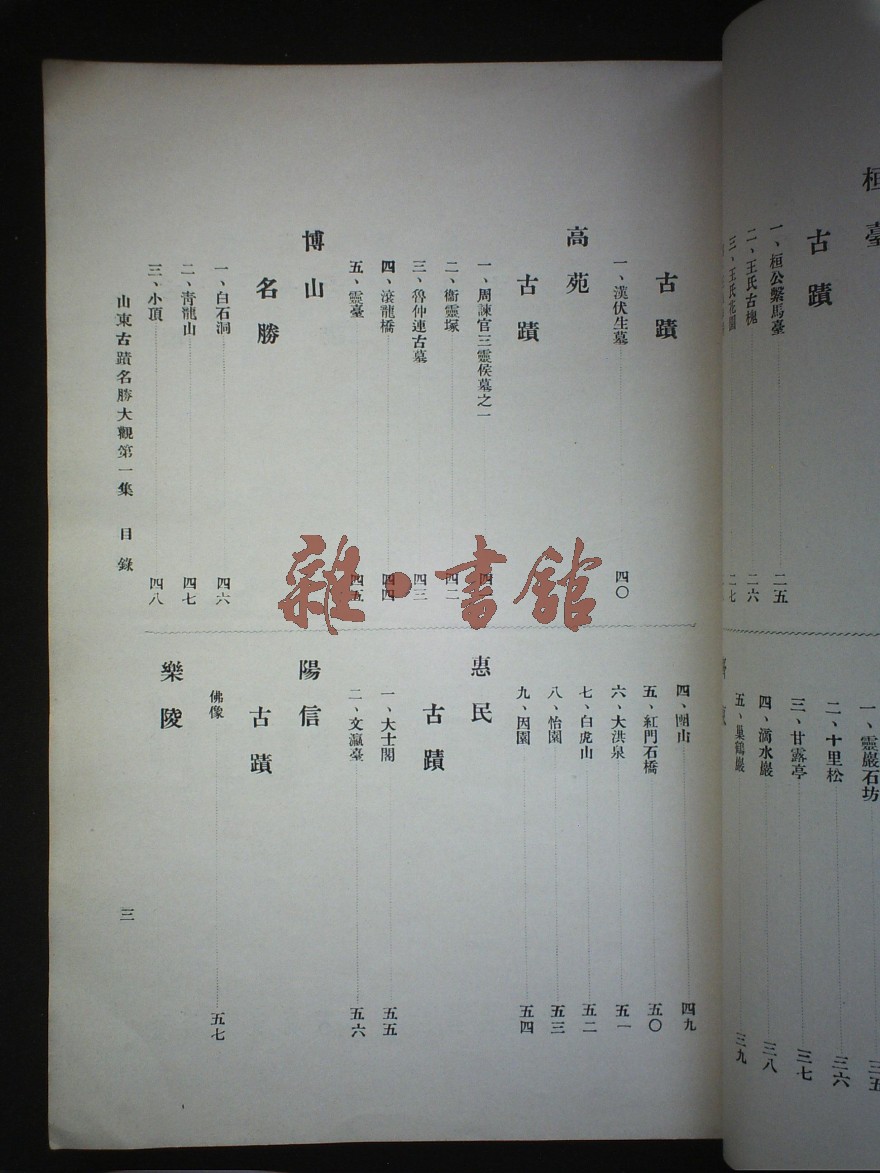 桓臺
古蹟
一、桓公繫馬臺 二五
二、王氏古槐 二六
三、王氏花園 二七
一、靈巖石坊 三五
二、十里松 三六
三、甘露亭 三七
四、滴水巖 三八
五、巢鶴巖 三九
古蹟
一、漢伏生墓 四〇
高苑
古蹟
一、周諫官三靈侯墓之一
二、衞靈塚 四二
三、魯仲連古墓 四三
四、滾龍橋 四四
五、靈臺 四五
博山
名勝
一、白石洞 四六
二、青龍山 四七
三、小頂 四八
四、團山 四九
五、紅門石橋 五〇
六、大洪泉 五一
七、白虎山 五二
八、怡園 五三
九、因園 五四
惠民
古蹟
一、大士閣 五五
二、文瀛臺 五六
陽信
古蹟
佛像 五七
樂陵
山東古蹟名勝大觀第一集 目錄
三
雜·書館